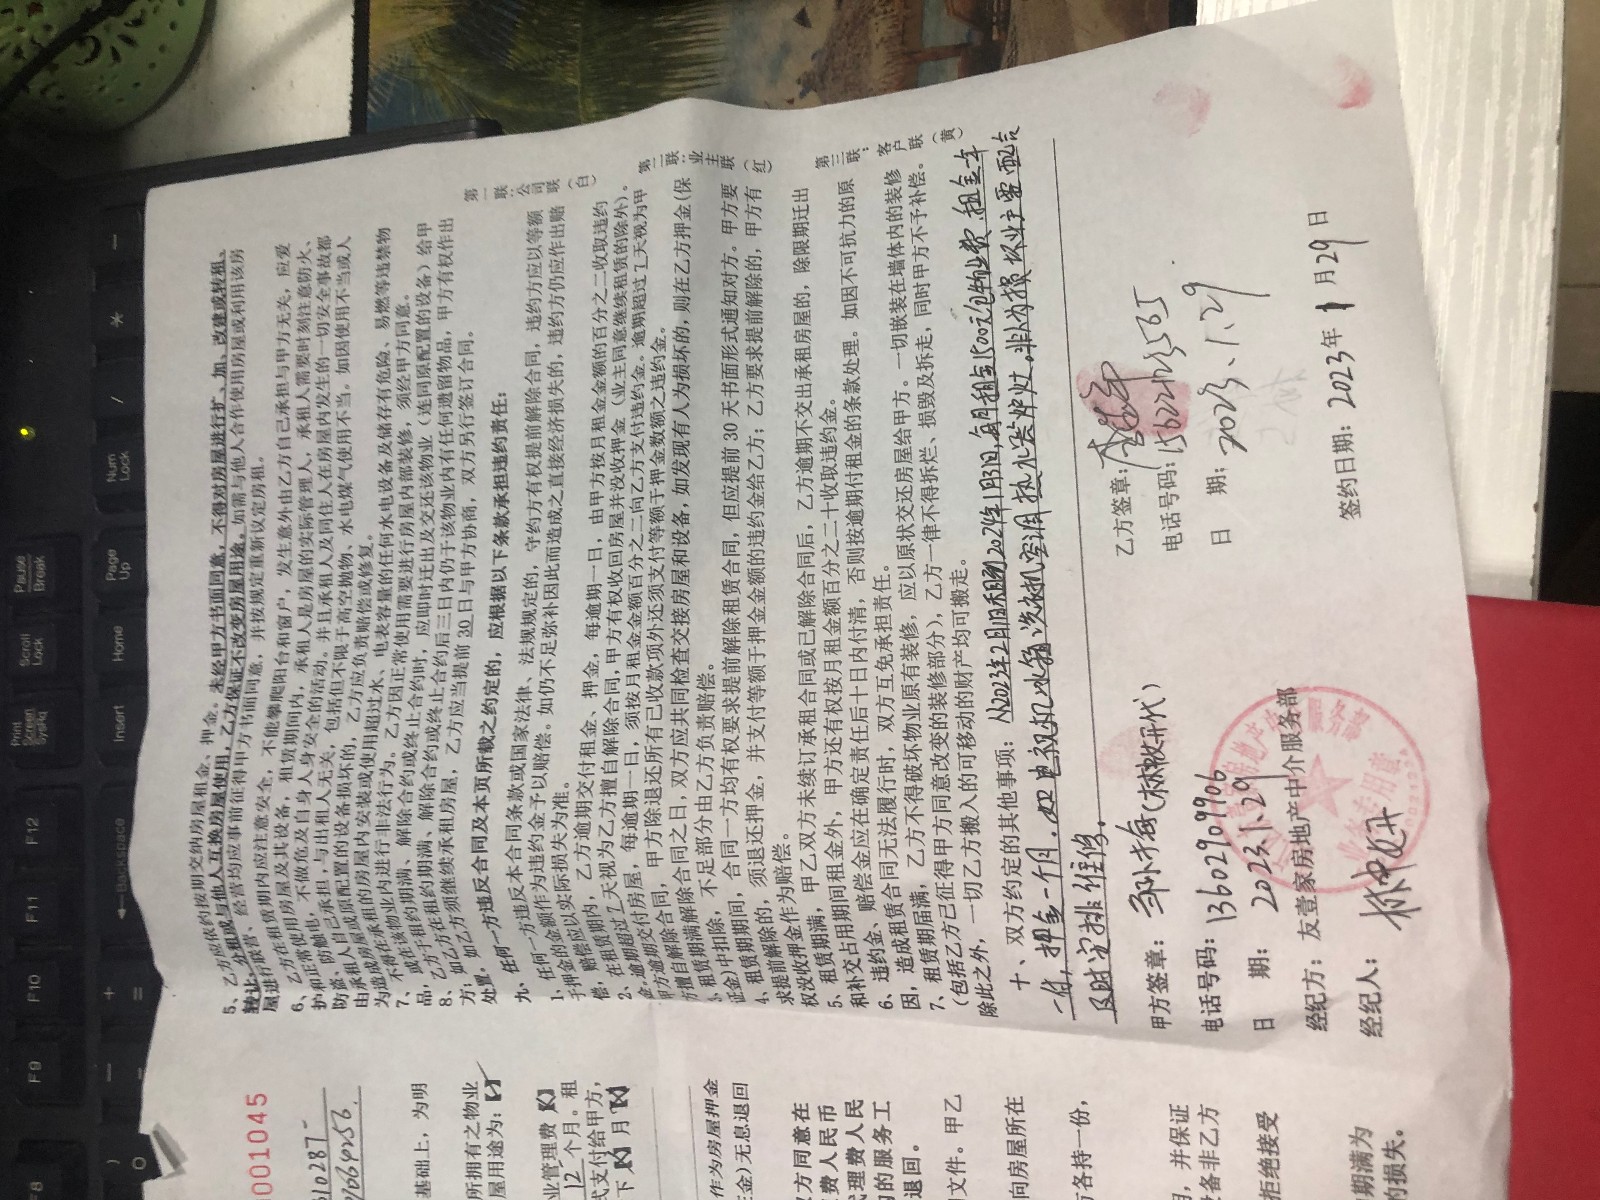 5、乙方应依约按期交纳房屋租金、押金。未经甲方书面同意，不得对房屋进行扩、加、改建或转租、
转让、分租或与他人互换房屋使用，乙方保证不改变房屋用途。如需与他人合作使用房屋或利用该房
屋进行联营、经营均应事前征得甲方书面同意，并按规定重新议定房租。
6、乙方在租赁期内应注意安全，不能攀爬阳台和窗户，发生意外由乙方自己承担与甲方无关，应爱
护和正常使用房屋及其设备，租赁期间内，承租人是房屋的实际管理人，承租人需要时刻注意防火、
防盗、防触电，不做危及自身人身安全的活动。并且承租人及同住人在房屋内发生的一切安全事故都
由承租人自己承担，与出租人无关，包括但不限于高空抛物、水电煤气使用不当。如因使用不当或人
为造成房屋或原配置的设备损坏的，乙方应负责赔偿或修复。
7、不得在承租的房屋内安装或使用超过水、电表容量的任何水电设备及储存有危险、易燃等违禁物
品，或在该物业内进行非法行为。乙方因正常使用需要进行房屋内部装修，须经甲方同意。
8、乙方于租约期满、解除合约或终止合约时，应即时迁出及交还该物业（连同原配置的设备）给甲
方；如乙方在租约期满、解除合约或终止合约后三日内仍于该物业内有任何遗留物品，甲方有权作出
处置。如乙方须继续承租房屋，乙方应当提前30日与甲方协商，双方另行签订合同。
九、任何一方违反合同及本页所载之约定的，应根据以下条款承担违约责任：
1、任何一方违反本合同条款或国家法律、法规规定的，守约方有权提前解除合同，违约方应以等额
于押金的金额作为违约金予以赔偿。如仍不足弥补因此而造成之直接经济损失的，违约方仍应作出赔
偿，赔偿应以实际损失为准。
2、在租赁期内，乙方逾期交付租金、押金，每逾期一日，由甲方按月租金金额的百分之二收取违约
金；逾期超过7天视为乙方擅自解除合同，甲方有权收回房屋并没收押金（业主同意继续租赁的除外）。
甲方逾期交付房屋，每逾期一日，须按月租金金额百分之二向乙方支付违约金。逾期超过7天视为甲
方擅自解除合同，甲方除退还所有已收款项外还须支付等额于押金数额之违约金。
3、租赁期满解除合同之日，双方应共同检查交接房屋和设备，如发现有人为损坏的，则在乙方押金（保
证金）中扣除，不足部分由乙方负责赔偿。
4、租赁期期间，合同一方均有权要求提前解除租赁合同，但应提前30天书面形式通知对方。甲方要
求提前解除的，须退还押金，并支付等额于押金金额的违约金给乙方；乙方要求提前解除的，甲方有
权没收押金作为赔偿。
5、租赁期满，甲乙双方未续订承租合同或已解除合同后，乙方逾期不交出承租房屋的，除限期迁出
和补交占用期间租金外，甲方还有权按月租金额百分之二十收取违约金。
6、违约金、赔偿金应在确定责任后十日内付清，否则按逾期付租金的条款处理。如因不可抗力的原
因，造成租赁合同无法履行时，双方互免承担责任。
7、租赁期届满，乙方不得破坏物业原有装修，应以原状交还房屋给甲方。一切嵌装在墙体内的装修
（包括乙方已征得甲方同意改变的装修部分），乙方一律不得拆烂、损毁及拆走，同时甲方不予补偿。
除此之外，一切乙方搬入的可移动的财产均可搬走。
十、双方约定的其他事项：从2023年2月1日租期2024年1月31日，每月租金1500元包物业费，租金一年
一付，押金一个月。 电视机冰箱洗衣机空调热水器炉灶。非人为损坏业主需配合
及时安排维修。
第一联：公司联（白）
第二联：业主联（红）
第三联：客户联（黄）
甲方签章：
电话号码：13602909906
日 期：2023.1.29
乙方签章：
电话号码：
日 期：2023.1.29
经纪方：友壹家房地产中介服务部
经纪人：
签约日期：2023年1月29日
业务专用章
0001045
基础上，为明
所拥有之物业
屋用途为：
业管理费
12个月。租
式支付给甲方，
作为房屋押金
金）无息退回
方同意在
费人民币
理费人民
的服务工
退回。
文件。甲乙
向房屋所在
各持一份，
，并保证
设备非乙方
拒绝接受
期满为
的损失。
Pause
Break
Scroll
Lock
Print
Screen
SysRq
Num
Lock
Page
Up
Home
Insert
Backspace
F12
F11
F10
F9
F8